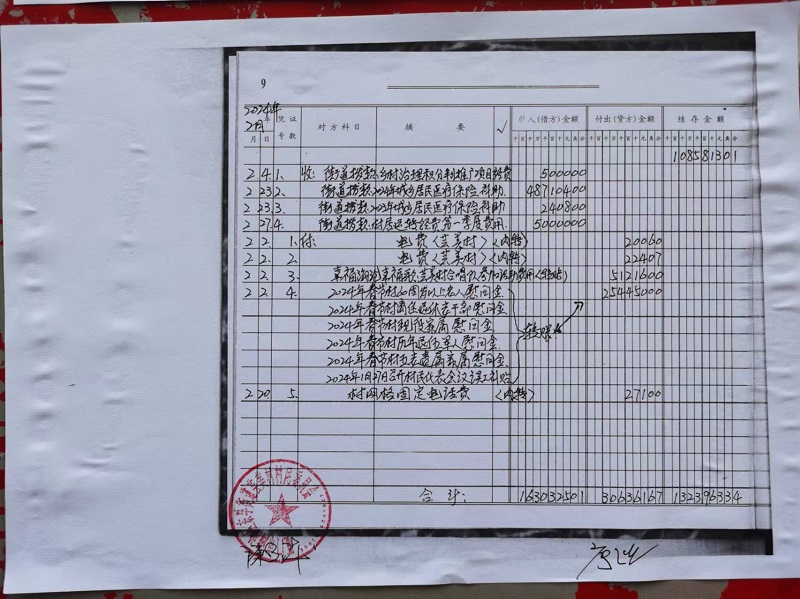 9
2024年
2月
年
月 日
凭证
号数
对方科目
摘 要
√
收入(借方)金额
千百十万千百十元角分
付出(贷方)金额
千百十万千百十元角分
结存金额
千百十万千百十元角分
108581301
2 4 1. 收: 街道拨款.乡村治理 推广项目经费 500000
2 23 2. 街道拨款.2024年城乡居民医疗保险补助 48710400
2 23 3. 街道拨款.2023年城乡居民医疗保险补助 240800
2 27 4. 街道拨款.村居运转经费第一季度费用 5000000
2 2 1. 付: 电费〈芸美村〉〈内转〉 20060
2 2 2. 电费〈芸美村〉〈内转〉 22407
2 2 3. 幸福 活动费用〈转账〉 5121600
2 2 4. 2024年春节村60周岁以上老人慰问金 25445000
2024年春节村离任退休老干部慰问金
2024年春节村现役家属慰问金
2024年春节村历年退伍军人慰问金
转账
2024年春节村 遗属家属慰问金
2024年1月27日召开村民代表会议误工补贴
2 20 5. 村网格固定电话费 〈内转〉 27100
合计: 163032501 30636167 132396334